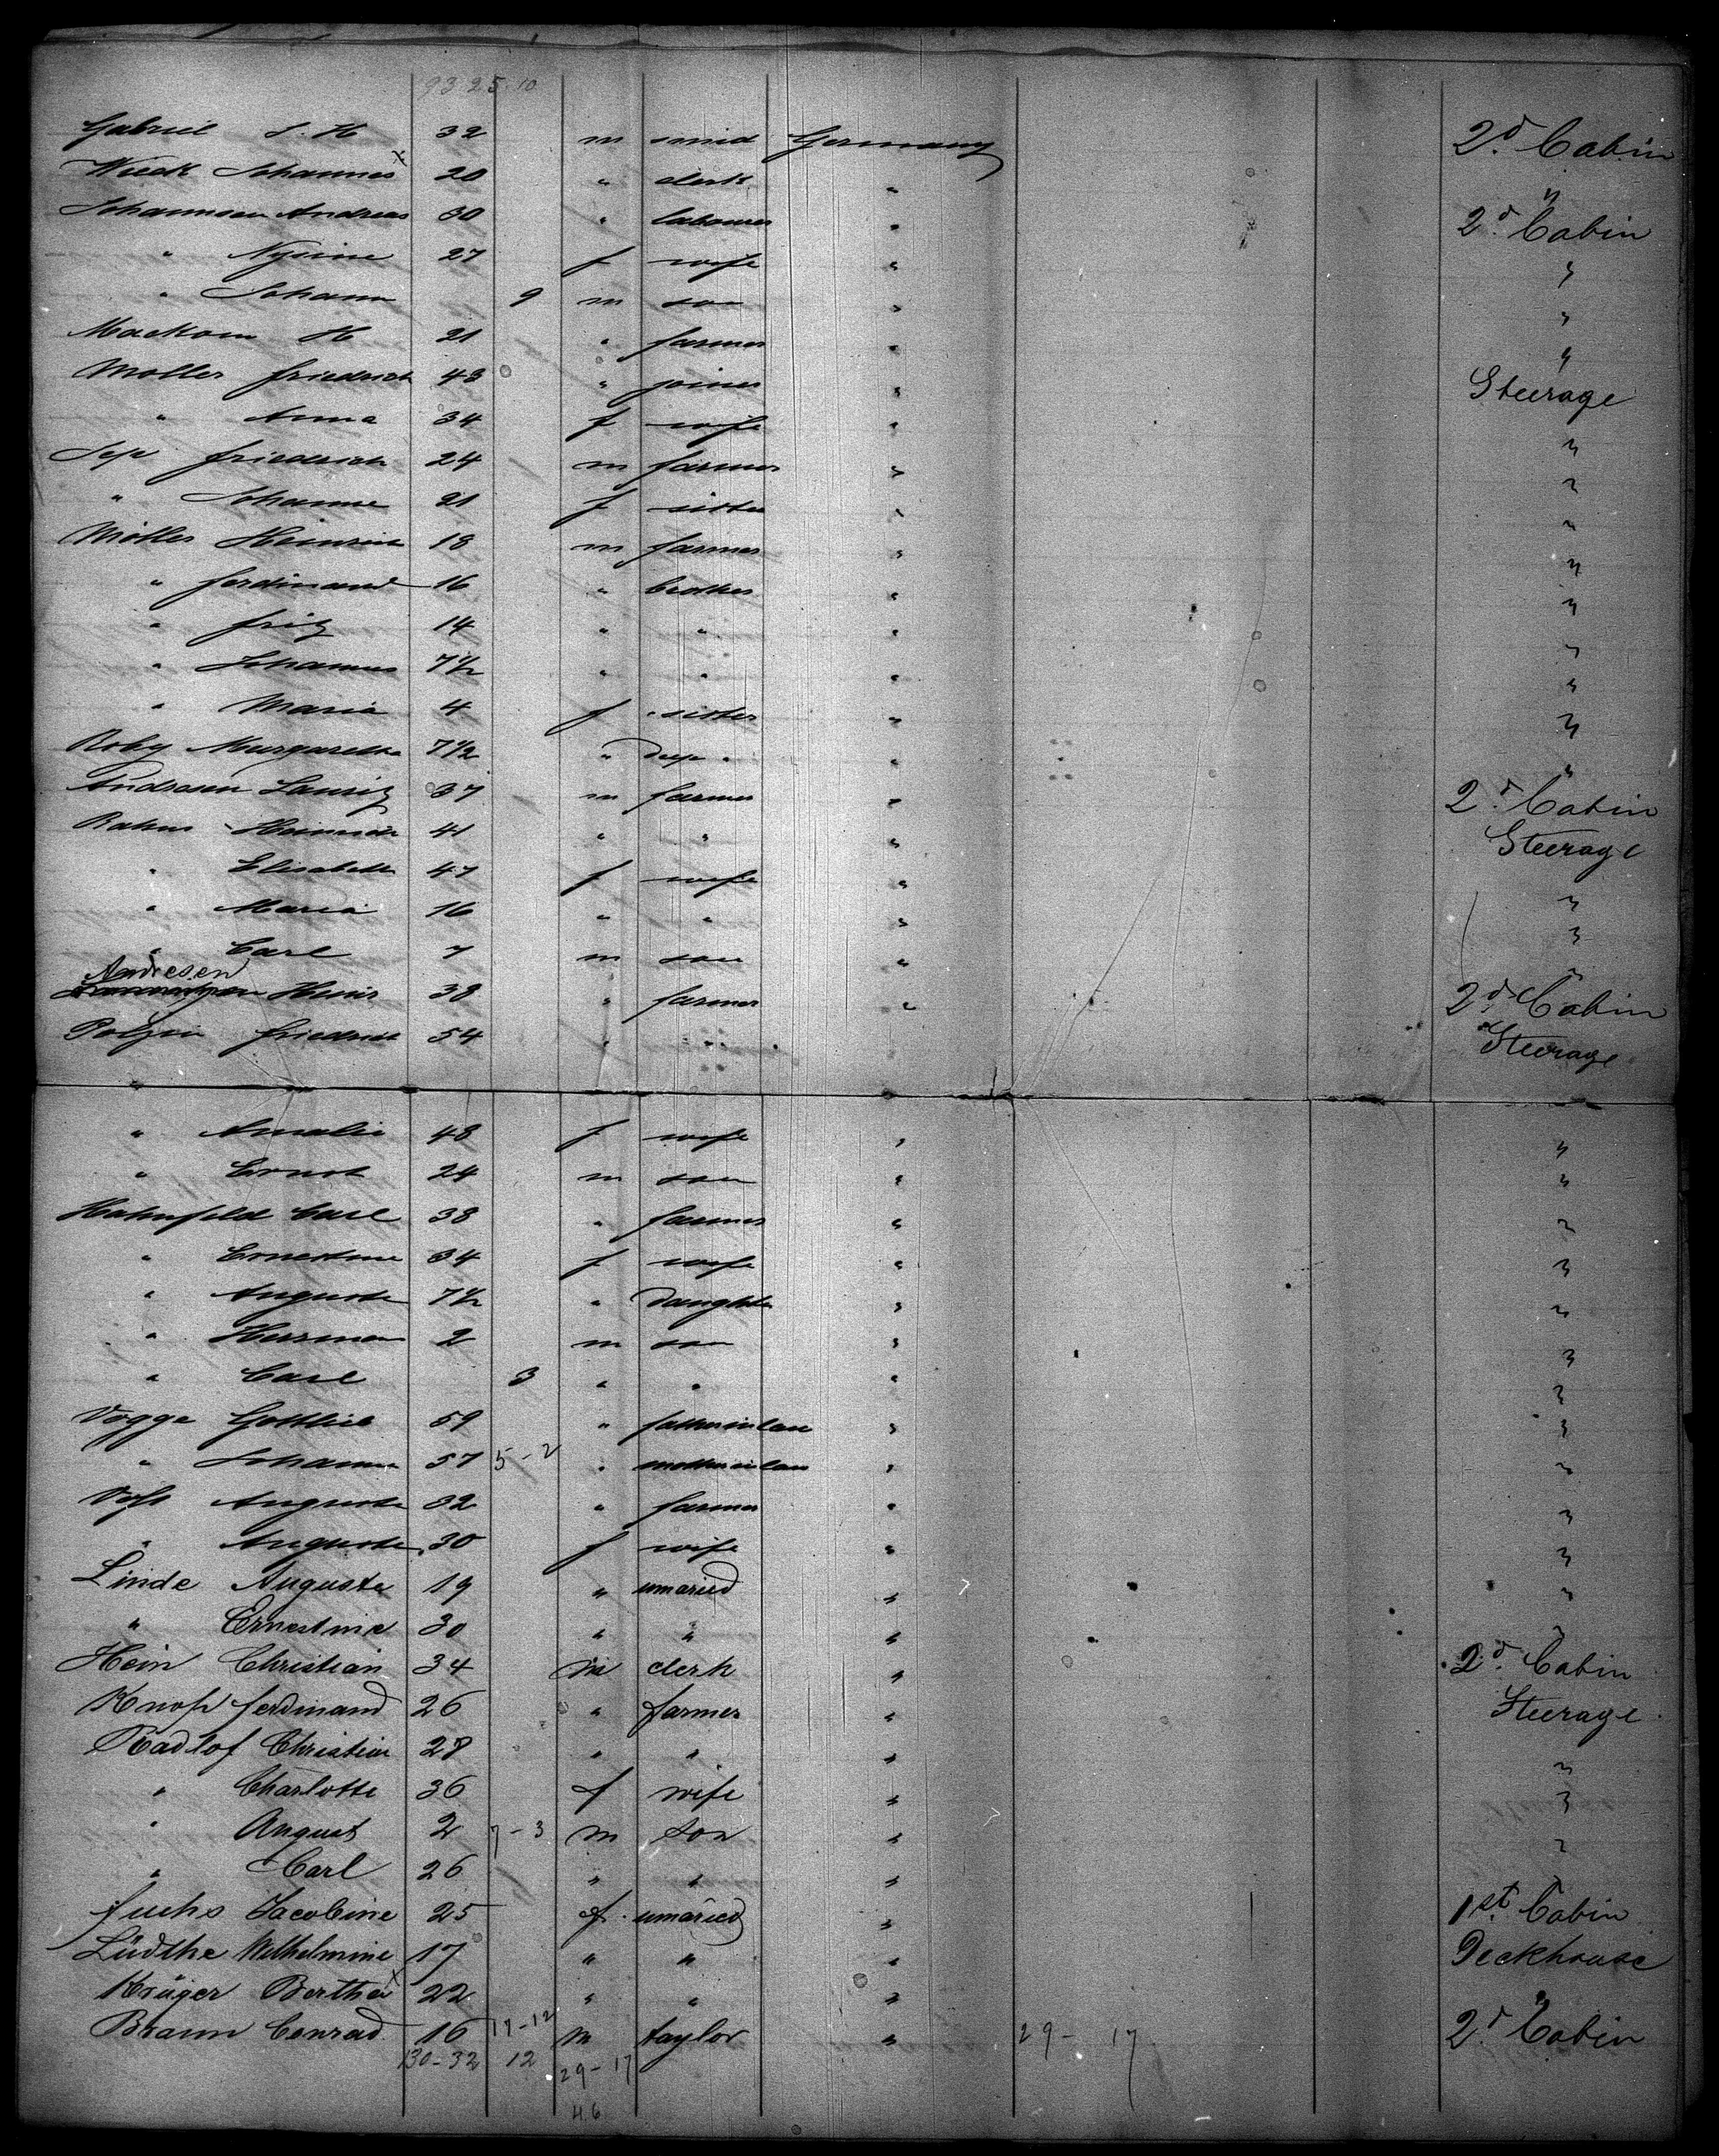 93 25 10
Gabriel J. H 32 m smid Germany 2d. Cabin
Wieck Johannes x 20 " clerk " "
Johannsen Andreas 30 " labourer " 2d. Cabin
" 27 f wife " "
" Johann 9 m son " "
H 21 " farmer " "
Moller Friedrich 43 " joiner " Steerage
" Anna 34 f wife " "
Friedrich 24 m farmer " "
" Johanne 21 f sister " "
Möller Heinrich 18 m farmer " "
" Ferdinand 16 " brother " "
" Fritz 14 " " " "
" Johannes 7 1/2 " " " "
" Maria 4 f sister " "
Roby Margaretha 7 1/2 " " "
Andresen Lauritz 37 m farmer " 2d. Cabin
Rahm Heinrich 41 " " " Steerage
" Elisabeth 47 f wife " "
" Maria 16 " " " "
" Carl 7 m son " "
Andresen Heinr 38 " farmer " 2d. Cabin
Polzin Friedrich 54 " " Steerage
" Amalie 48 f wife " "
" Ernst 24 m son " "
Hahnfeld Carl 38 " farmer " "
" Ernestine 34 f wife " "
" Auguste 7 1/2 " daughter " "
" Herrman 2 m son " "
" Carl 3 " " " "
Vogge Gottlieb 59 " fatherinlaw " "
" Johanna 57 5-2 " motherinlaw " "
Voss Auguste 32 " farmer " "
" Auguste 30 f wife " "
Linde Auguste 19 " umaried " "
" Ernestine 30 " " " "
Hein Christian 34 m clerk " 2d. Cabin
Knoß Ferdinand 26 " farmer " Steerage
Radlof Christian 28 " " " "
" Charlotte 36 f wife " "
" August 2 7-3 m son " "
" Carl 26 " " " "
Fuchs Jacobine 25 f umaried " 1st. Cabin
Lüdthe Wilhelmine 17 " " " Deckhouse
Krüger Bertha x 22 " " " "
Braun Conrad 16 17-12 m taylor " 29- 17 2d. Cabin
130-32 12 29-17
46